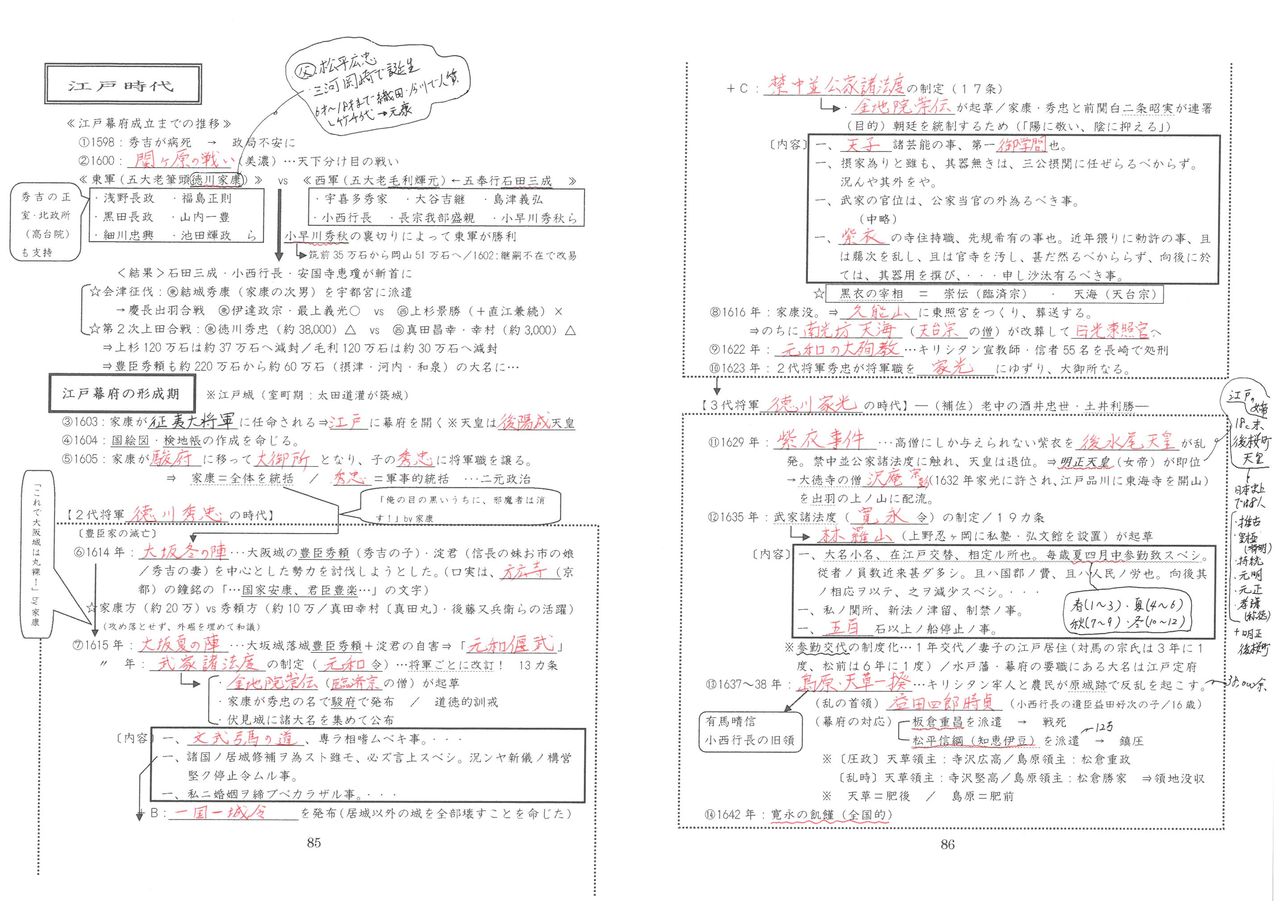 江戸時代
父 松平広忠
三河岡崎で誕生
6才〜18才まで織田・今川で人質
竹千代→元康
≪江戸幕府成立までの推移≫
①1598:秀吉が病死 → 政局不安に
②1600:関ヶ原の戦い(美濃)…天下分け目の戦い
≪東軍(五大老筆頭徳川家康)≫ vs ≪西軍(五大老毛利輝元)←五奉行石田三成 ≫
秀吉の正室・北政所(高台院)も支持
・浅野長政 ・福島正則
・黒田長政 ・山内一豊
・細川忠興 ・池田輝政 ら
・宇喜多秀家 ・大谷吉継 ・島津義弘
・小西行長 ・長宗我部盛親 ・小早川秀秋ら
小早川秀秋の裏切りによって東軍が勝利
筑前35万石から岡山51万石へ/1602:継嗣不在で改易
<結果>石田三成・小西行長・安国寺恵瓊が斬首に
☆会津征伐:東結城秀康(家康の次男)を宇都宮に派遣
→慶長出羽合戦 東伊達政宗・最上義光○ vs 西上杉景勝(+直江兼続)×
☆第2次上田合戦:東徳川秀忠(約38,000)△ vs 西真田昌幸・幸村(約3,000)△
⇒上杉120万石は約37万石へ減封/毛利120万石は約30万石へ減封
⇒豊臣秀頼も約220万石から約60万石(摂津・河内・和泉)の大名に…
江戸幕府の形成期 ※江戸城(室町期:太田道灌が築城)
③1603:家康が征夷大将軍に任命される⇒江戸に幕府を開く※天皇は後陽成天皇
④1604:国絵図・検地帳の作成を命じる。
⑤1605:家康が駿府に移って大御所となり、子の秀忠に将軍職を譲る。
⇒ 家康=全体を統括 / 秀忠=軍事的統括 …二元政治
「俺の目の黒いうちに、邪魔者は消す!」by家康
【2代将軍 徳川秀忠 の時代】
「これで大阪城は丸裸!」by家康
〔豊臣家の滅亡〕
⑥1614年:大坂冬の陣…大阪城の豊臣秀頼(秀吉の子)・淀君(信長の妹お市の娘
/秀吉の妻)を中心とした勢力を討伐しようとした。(口実は、方広寺(京
都)の鐘銘の「…国家安康、君臣豊楽…」の文字)
☆家康方(約20万)vs秀頼方(約10万/真田幸村〔真田丸〕・後藤又兵衛らの活躍)
(攻め落とせず、外堀を埋めて和議)
⑦1615年:大坂夏の陣…大坂城落城豊臣秀頼+淀君の自害⇒「元和偃武」
〃 年:武家諸法度の制定(元和令)…将軍ごとに改訂! 13カ条
・金地院崇伝(臨済宗の僧)が起草
・家康が秀忠の名で駿府で発布 / 道徳的訓戒
・伏見城に諸大名を集めて公布
〔内容〕一、文武弓馬の道、専ラ相嗜ムベキ事。・・・
一、諸国ノ居城修補ヲ為スト雖モ、必ズ言上スベシ。況ンヤ新儀ノ構営
堅ク停止令ムル事。
一、私ニ婚姻ヲ締ブベカラザル事。・・・
+B:一国一城令 を発布(居城以外の城を全部壊すことを命じた)
85
+C:禁中並公家諸法度の制定(17条)
・金地院崇伝が起草/家康・秀忠と前関白二条昭実が連署
(目的)朝廷を統制するため(「陽に敬い、陰に抑える」)
〔内容〕一、天子 諸芸能の事、第一御学問也。
一、摂家為りと雖も、其器無きは、三公摂関に任ぜらるべからず。
況んや其外をや。
一、武家の官位は、公家当官の外為るべき事。
(中略)
一、紫衣の寺住持職、先規希有の事也。近年猥りに勅許の事、且
は臈次を乱し、且は官寺を汚し、甚だ然るべからず、向後に於
ては、其器用を撰び、・・・申し沙汰有るべき事。
☆ 黒衣の宰相 = 崇伝(臨済宗) ・ 天海(天台宗)
⑧1616年:家康没。⇒久能山に東照宮をつくり、葬送する。
⇒のちに南光坊天海(天台宗の僧)が改葬して日光東照宮へ
⑨1622年:元和の大殉教…キリシタン宣教師・信者55名を長崎で処刑
⑩1623年:2代将軍秀忠が将軍職を 家光 にゆずり、大御所なる。
【3代将軍 徳川家光の時代】―(補佐)老中の酒井忠世・土井利勝―
⑪1629年:紫衣事件 …高僧にしか与えられない紫衣を後水尾天皇が乱
発。禁中並公家諸法度に触れ、天皇は退位。⇒明正天皇(女帝)が即位
→大徳寺の僧沢庵宗彭(1632年家光に許され、江戸品川に東海寺を開山)
を出羽の上ノ山に配流。
⑫1635年:武家諸法度(寛永令)の制定/19カ条
林羅山(上野忍ヶ岡に私塾・弘文館を設置)が起草
〔内容〕一、大名小名、在江戸交替、相定ル所也。毎歳夏四月中参勤致スベシ。
従者ノ員数近来甚ダ多シ。且ハ国郡ノ費、且ハ人民ノ労也。向後其
ノ相応ヲ以テ、之ヲ減少スベシ。・・・
一、私ノ関所、新法ノ津留、制禁ノ事。
一、五百石以上ノ船停止ノ事。
春(1〜3)・夏(4〜6)
秋(7〜9)・冬(10〜12)
※参勤交代の制度化…1年交代/妻子の江戸居住(対馬の宗氏は3年に1
度、松前は6年に1度)/水戸藩・幕府の要職にある大名は江戸定府
⑬1637〜38年:島原・天草一揆…キリシタン牢人と農民が原城跡で反乱を起こす。
38,000余
(乱の首領)益田四郎時貞(小西行長の遺臣益田好次の子/16歳)
有馬晴信
小西行長の旧領
(幕府の対応)板倉重昌を派遣 → 戦死
12万
松平信綱(知恵伊豆)を派遣 → 鎮圧
※〔圧政〕天草領主:寺沢広高/島原領主:松倉重政
〔乱時〕天草領主:寺沢堅高/島原領主:松倉勝家 ⇒領地没収
※ 天草=肥後 / 島原=肥前
⑭1642年:寛永の飢饉(全国的)
86
江戸の女帝
18c末
後桜町
天皇
日本史上
で8人
・推古
・皇極
(斉明)
・持統
・元明
・元正
・孝謙
(称徳)
+明正
後桜町